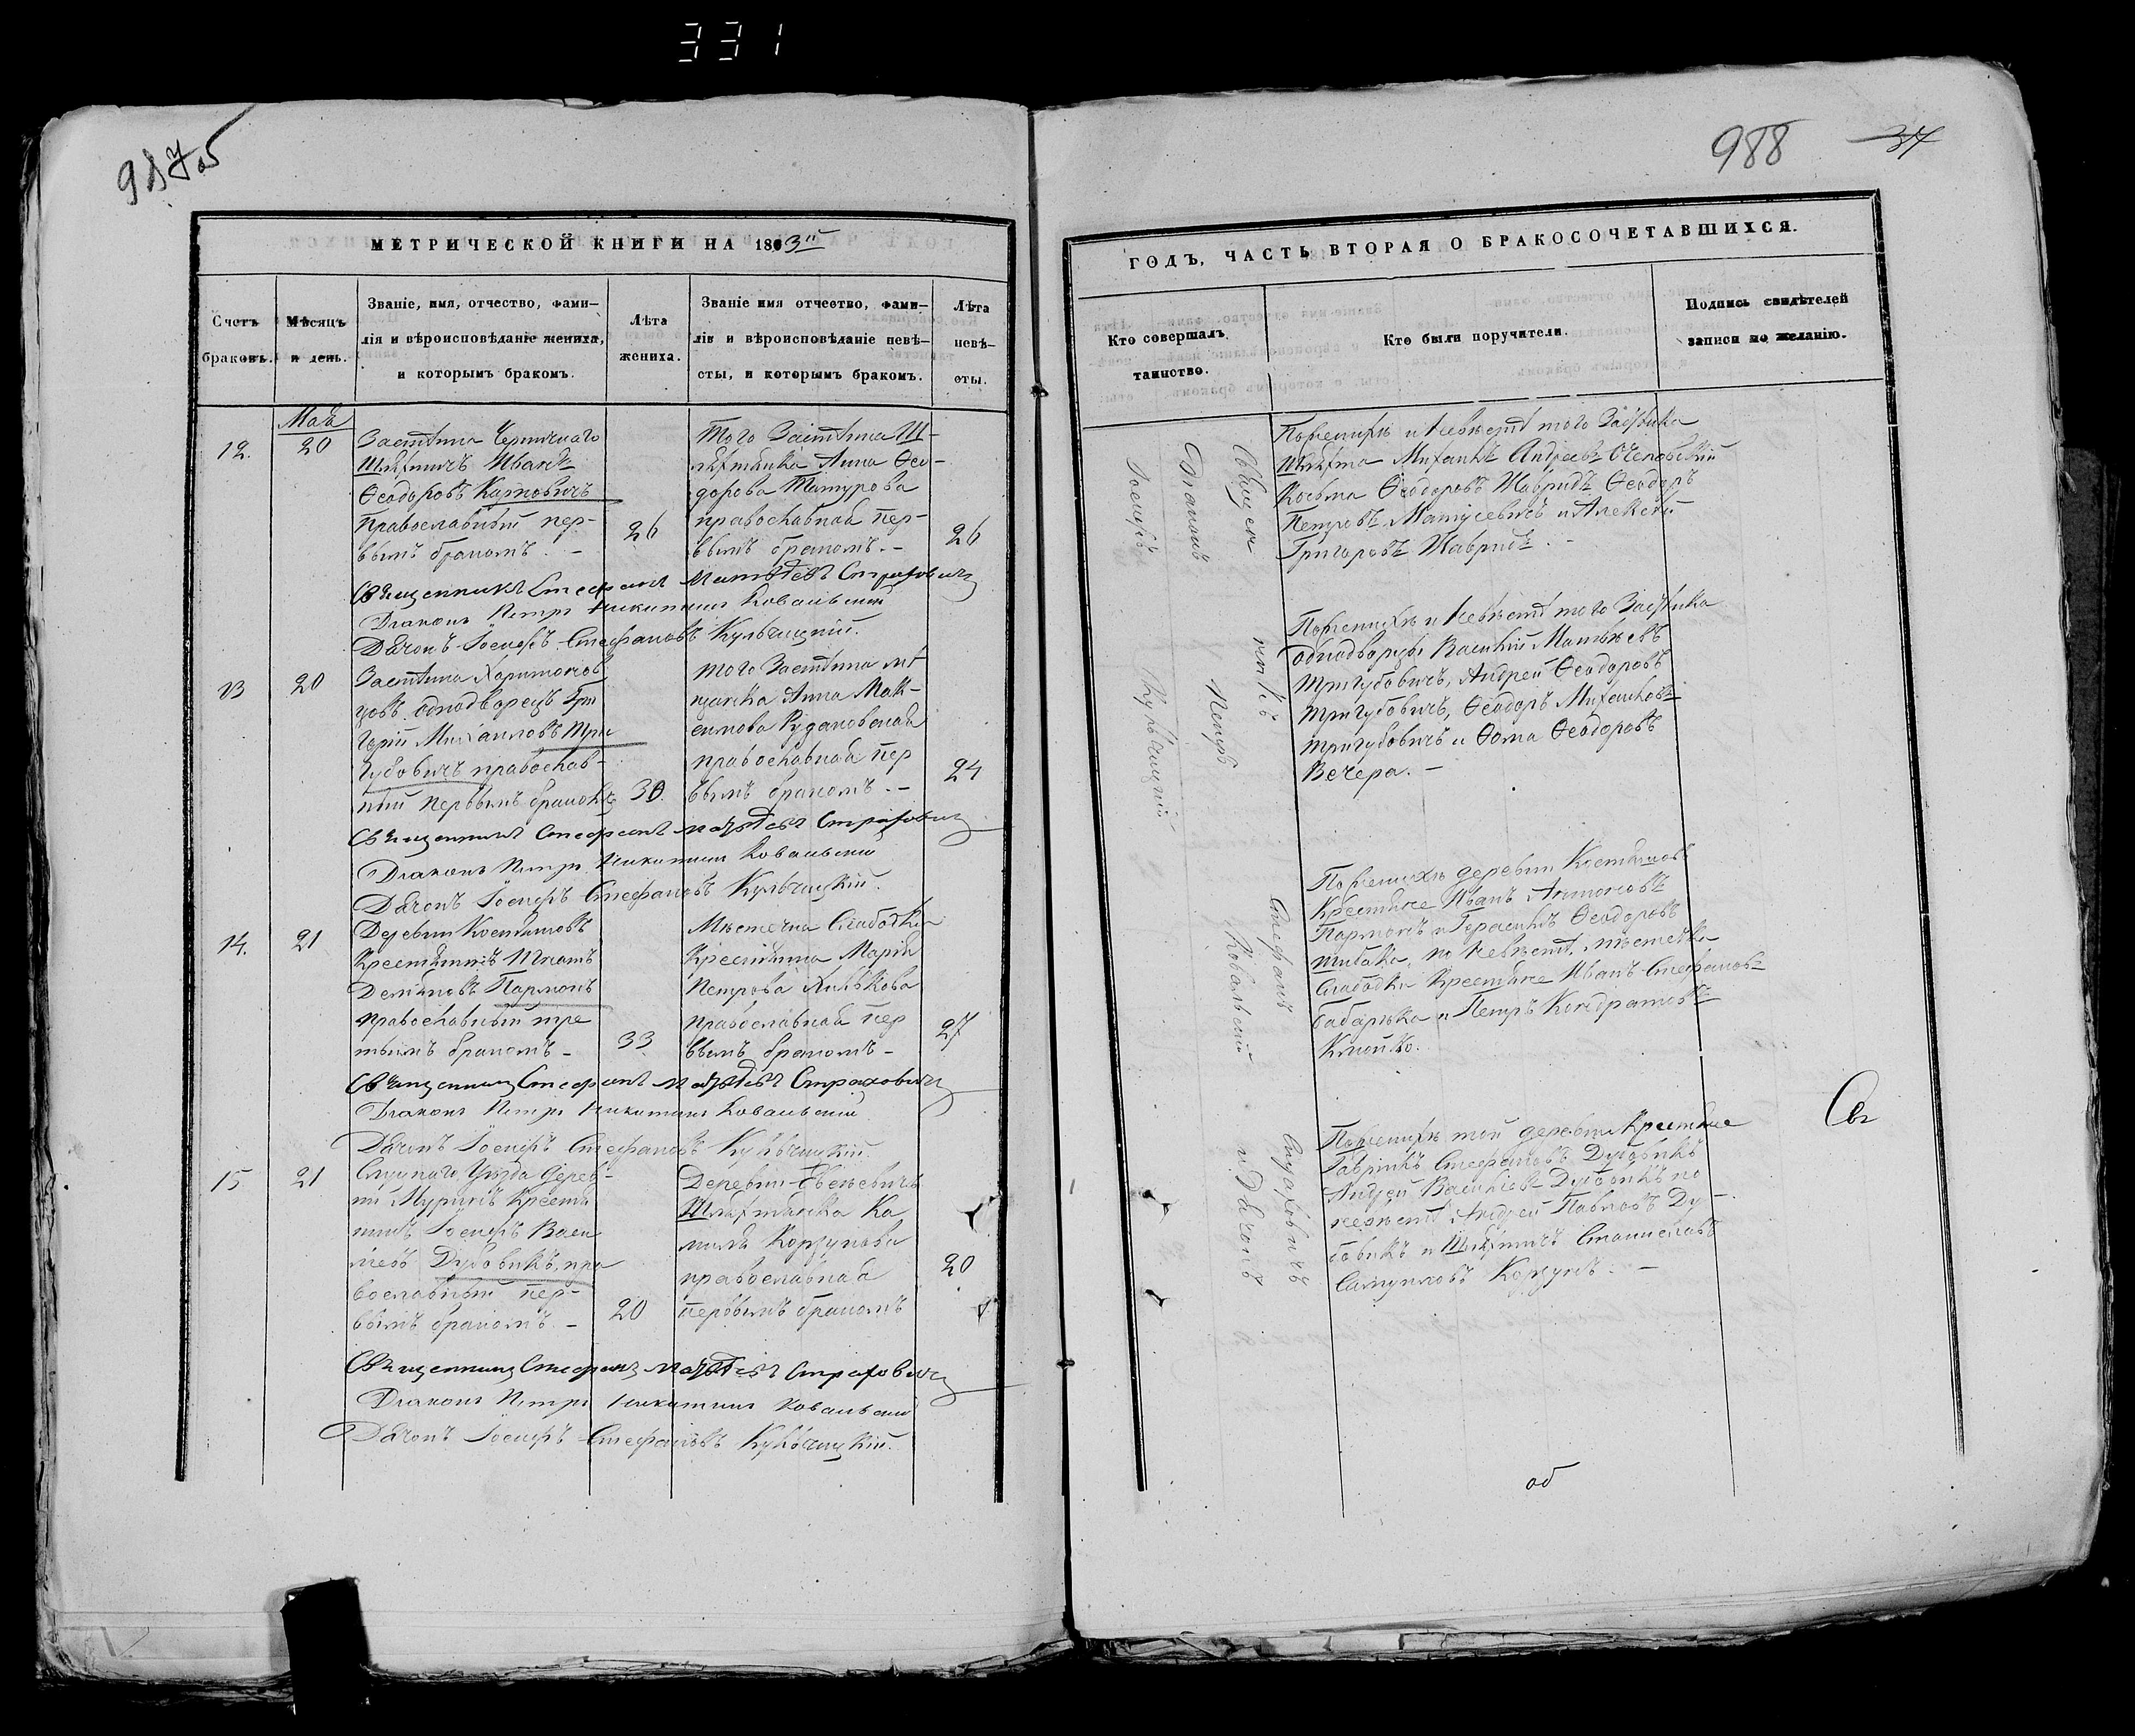 331
987об
МЕТРИЧЕСКОЙ КНИГИ НА 1863й
Счетъ браковъ.
Мѣсяцъ и день.
Званіе, имя, отчество, фами-
лія и вѣроисповѣданіе жениха,
и которымъ бракомъ.
Лѣта
жениха.
Званіе имя отчество, фами-
лія и вѣроисповѣданіе невѣ-
сты, и которымъ бракомъ.
Лѣта
невѣ-
сты.
Мая
12. 20
Застѣнка
Шляхтичь Иванъ
Ѳеодоровъ
Православный пер-
вымъ бракомъ. -
26
Того Застѣнка Ш-
ляхтянка Анна Ѳео-
дорова
православная пер-
вымъ бракомъ. -
26
Священникъ Стефанъ Матѳеевъ Страховичъ
Діаконъ Петръ Никитинъ Ковальскій
Дьячокъ Іосифъ Стефановъ Кульчицкій.
13 20
Застѣнка
однодворецъ Гри
горій Михаиловъ Три
губовичъ православ-
ный первымъ бракомъ
30.
того Застѣнка мѣ
щанка Анна Мак-
симова
православная пер
вымъ бракомъ. -
24
Священникъ Стефанъ Матѳеевъ Страховичъ
Діаконъ Петръ Никитинъ Ковальскій
Дьячокъ Іосифъ Стефановъ Кульчицкій.
14. 21
Деревни Костяшовъ
Крестьянинъ Игнатъ
Демьяновъ Пармонъ
православный тре
тьимъ бракомъ -
33
Мѣстечка Слабодки
Крестьянка Марія
Петрова
православная пер
вымъ бракомъ -
27
Священникъ Стефанъ Матѳеевъ Страховичъ
Діаконъ Петръ Никитинъ Ковальскій
Дьячокъ Іосифъ Стефановъ Кульчицкій.
15 21
Слуцкаго Уѣзда Дерев-
ни Крестья
нинъ Іосифъ Васи
ліевъ Дубовикъ, пра
вославный пер-
вымъ бракомъ. -
20
Деревни
Шляхтянка Ка
милія Коржунова
православная
первымъ бракомъ
20
Священникъ Стефанъ Матѳеевъ Страховичъ
Діаконъ Петръ Никитинъ Ковальскій
Дьячокъ Іосифъ Стефановъ Кульчицкій.
988 37
ГОДЪ, ЧАСТЬ ВТОРАЯ О БРАКОСОЧЕТАВШИХСЯ.
Кто совершалъ
таинство.
Кто были поручители.
Подпись свидѣтелей
записи по желанію.
Священникъ Стефанъ Страховичъ
Діаконъ Петръ Ковальскій и Дьячокъ
Іосифъ Кульчицкій
По женихѣ и невѣстѣ того Застѣнка
Шляхта Михаилъ Андреевъ
Косьма Ѳеодоровъ Ѳеодоръ
Петровъ Матусевичъ и Алексѣй
Григоровъ
По женихѣ и невѣстѣ того Застѣнка
однодворцы Василій Матвѣевъ
Тригубовичъ, Андрей Ѳеодоровъ
Тригубовичъ, Ѳеодоръ Михаиловъ
Тригубовичъ и Ѳома Ѳеодоровъ
Вечера. -
По женихѣ деревни Костяшовъ
Крестьяне Иванъ Антоновъ
Пармонъ и Герасимъ Ѳеодоровъ
по невѣстѣ, мѣстечка
Слабодки Крестьяне Иванъ Стефановъ
и Петръ Кондратовъ
По женихѣ той деревни Крестьяне
Гавріилъ Стефановъ Дубовикъ
Андрей Василіевъ Дубовикъ по
невѣстѣ Андрей Павловъ Ду-
бовикъ и Шляхтичъ Станиславъ
Самуиловъ Коржунъ. -
Св
об